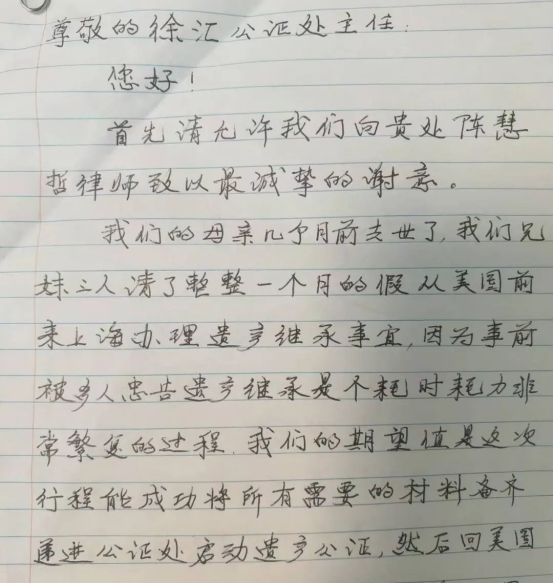 尊敬的徐汇公证处主任:
您好!
首先请允许我们向贵处陈慧
哲律师致以最诚挚的谢意。
我们的母亲几个月前去世了,我们兄
妹三人请了整整一个月的假从美国前
来上海办理遗产继承事宜,因为事前
被多人忠告遗产继承是个耗时耗力非
常繁复的过程,我们的期望值是这次
行程能成功将所有需要的材料备齐
递进公证处启动遗产公证,然后回美国